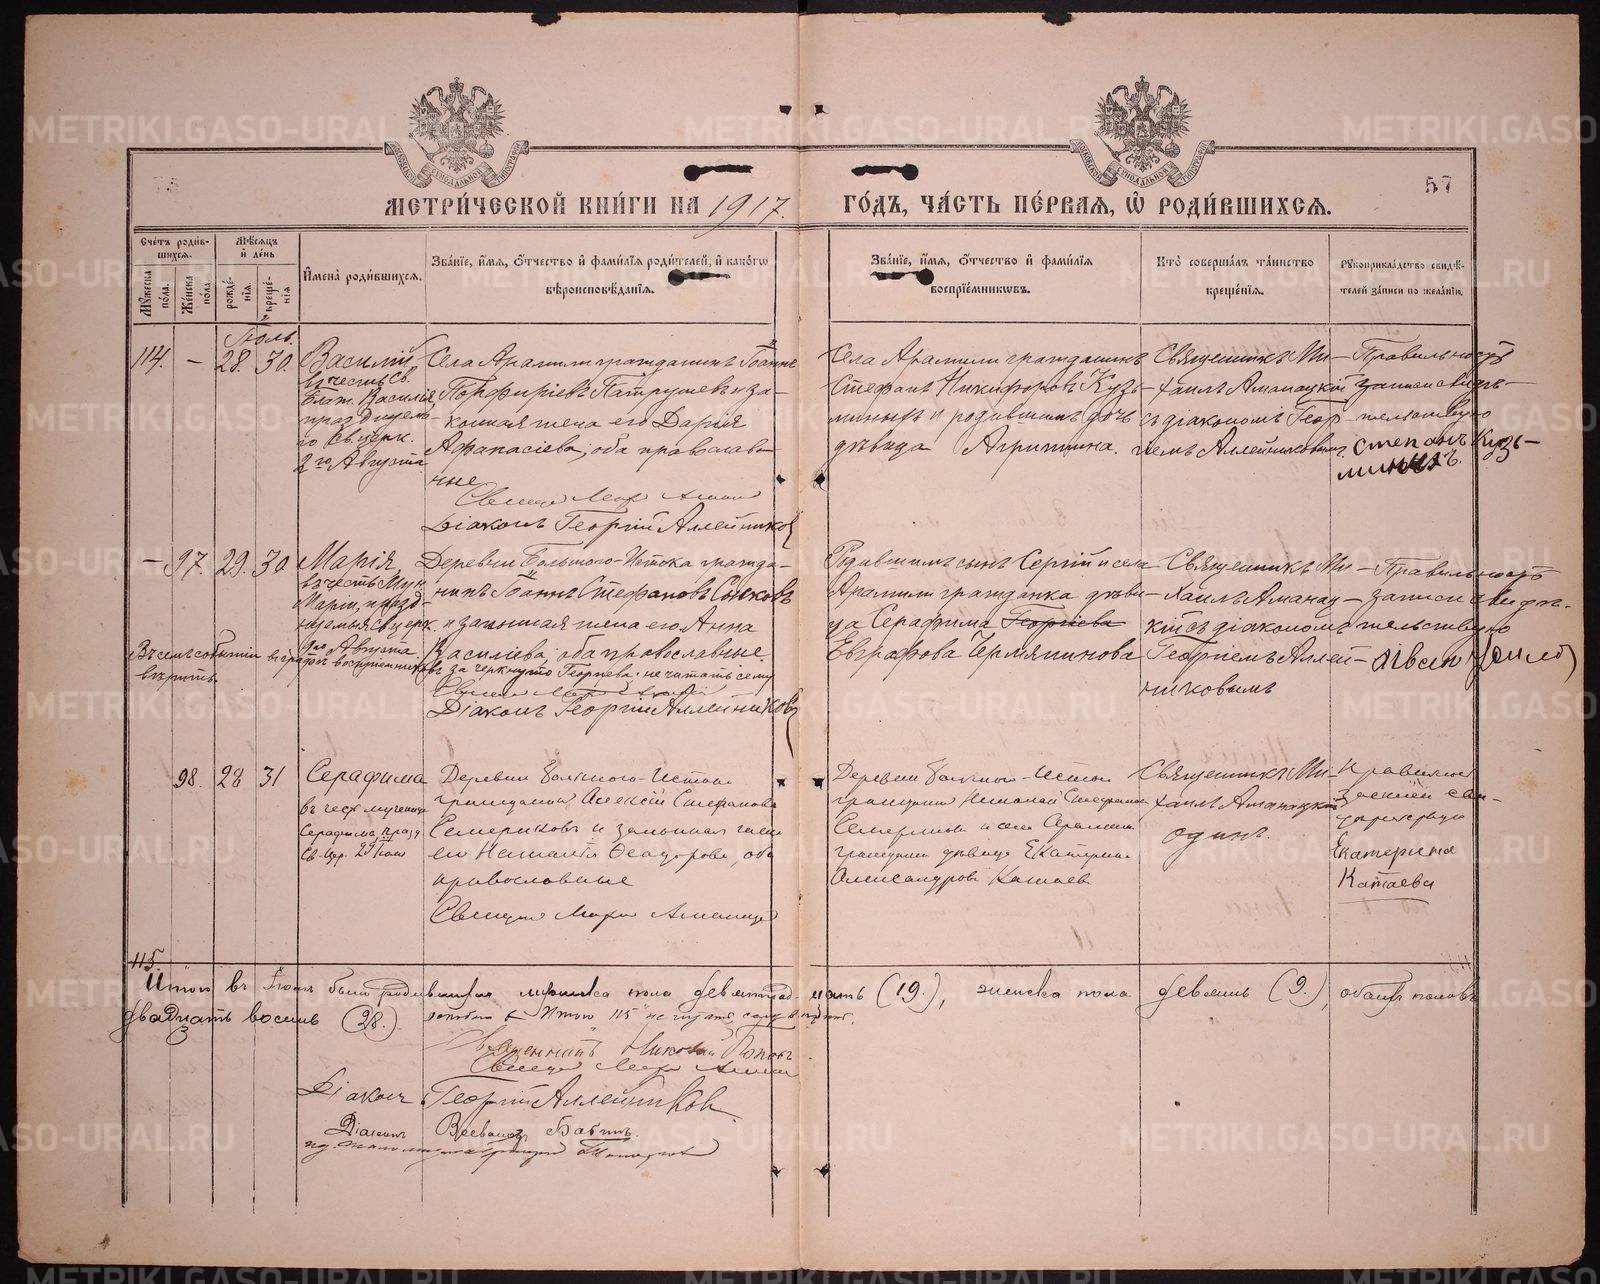 57
МЕТРИ́ЧЕСКОЙ КНИ́ГИ НА 1917. ГО́ДЪ, ЧА́СТЬ ПЕ́РВАЯ, Ѡ҆ РОДИ́ВШИХСЯ.
Счетъ роди́вшихся.
Мꙋ́жеска по́ла.
Же́нска по́ла.
Мѣ́сяцъ и҆ де́нь
рожде́нїѧ.
креще́нїѧ
И҆мена̀ роди́вшихсѧ.
Зва́нїе, и҆́мѧ, ѻ҆́тчество и҆ фами́лїѧ роди́телей, и҆ како́гѡ вѣроисповѣ́данїѧ.
Зва́нїе, и҆́мѧ, ѻ҆́тчество и҆ фами́лїѧ воспрїе́мникѡвъ.
Кто̀ соверша́лъ та́инство креще́нїѧ.
Рꙋкоприкла́дство свидѣ́телей за́писи по жела́нїю.
Іюль.
114. – 28. 30.
Василій
въ честь Св.
Блаж. Василія
празднуем-
го Св. церк.
2го Августа
Села Арамили гражданинъ Іоаннъ
Порфиріевъ Патрушевъ и за-
конная жена его Дарія
Афанасіева, оба православ-
ные.
Діаконъ Георгій Аллейников
Села Арамили гражданинъ
Стефанъ Никифоровъ Кузь-
миныхъ и родившимъ дочь
дѣвица Агрипина.
Священникъ Ми-
хаилъ Аманацкій
съ діакономъ Геор-
гіемъ Аллейниковымъ.
Правильность
записи свидѣ-
тельствую
Степанъ Кузь-
миныхъ.
– 97. 29. 30
Марія,
въ честь Муч.
Маріи, празд-
нуемыя св. церк.
9го Августа.
Деревни Большого-Истока гражда-
нинъ Іоаннъ Стефановъ Сонковъ
и законная жена его Анна
Василіева, оба православные.
Въ семъ событіи въ графѣ воспріемниковъ зачеркнуто „Георгіева“ не читать сему
вѣрить.
Діаконъ Георгій Аллейников
Родившимъ сынъ Сергій и села
Арамили гражданка дѣви-
ца Серафима Георгіева
Евграфова Чермянинова
Священникъ Ми-
хаилъ Аманац-
кій съ діакономъ
Георгіемъ Аллей-
никовымъ
Правильность
записи свидѣ-
тельствую
Иван
98. 28 31
Серафима
въ честь мученицы
Серафимы празд.
Св. Цер. 29 Іюля
Деревни Больного-Истока
гражданинъ Алексій Стефановъ
Семериковъ и законная жена
его Неонила Ѳеодорова, оба
православные
Деревни Больного-Истока
гражданинъ Николай Стефановъ
Семериковъ и села Арамили
гражданка дѣвица Екатерина
Александрова Катаева
Священникъ Ми-
хаилъ Аманацкій
одинъ.
Правильность
записи сви-
дѣтельствую
Екатерина
Катаева
115.
Итого въ Іюлѣ было родившихся мужеска пола девятнадцать (19.), женска пола девять (9.), обоихъ половъ
двадцать восемь (28.)
Итого 115 не читать, сему вѣрить.
Священникъ Николай Поповъ
Діаконъ Георгій Аллейников
Діаконъ Всеволодъ Бабинъ.